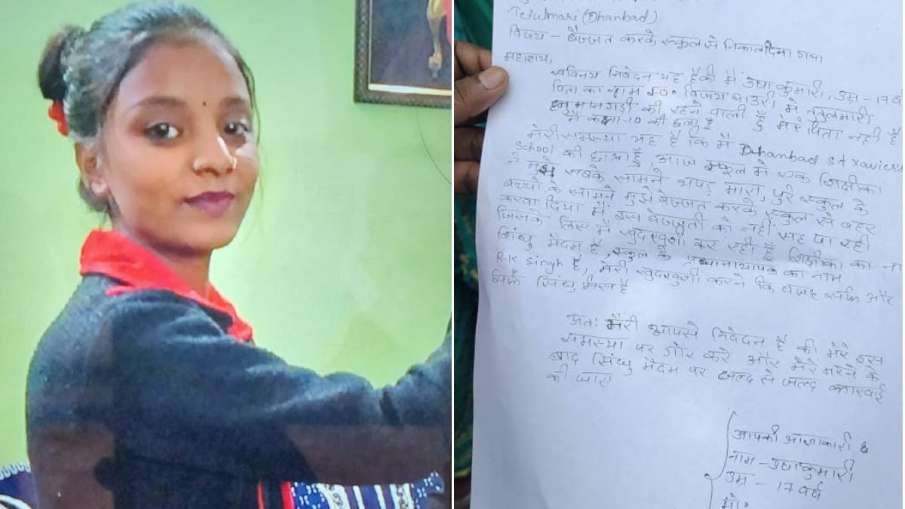 Telulmari (Dhanbad)
विषय - बेज्जत करके स्कुल से निकाल दिया गया
महाशय,
सविनय निवेदन यह है की मैं उषा कुमारी, उम्र - 17 वर्ष
पिता का नाम स्व॰ विजय बाउरी में तेतुलमारी
की रहने वाली हूँ मेरे पिता नही है
कक्षा-10 की छात्रा हूँ
मेरी समस्या यह है कि मैं Dhanbad st xaviers
School की छात्रा हूँ, आज स्कूल मे एक शिक्षीका
ने मुझे सबके सामने थप्पड़ मारा, पुरे स्कुल के
बच्चो के सामने मुझे बेज्जत करके स्कुल से बहर
करवा दिया मैं इस बेज्जती को नही सह पा रही
जिसके लिए मैं खुदखुशी कर रही हूँ शिक्षीका का ना
सिंधु मैडम है, स्कुल के प्रधानाध्यापक का नाम
R.K Singh है, मेरी खुदखुशी करने कि वजह और
सिर्फ सिंधु मैडम है
अतः मेरी आपसे निवेदन है की मेरे इस
समस्या पर गौर करे और मेरे मरने के
बाद सिंधु मैडम पर जल्द से जल्द कारवाई
की जाए।
आपकी आज्ञाकारी
नाम - उषा कुमारी
उम्र - 17 वर्ष
मो॰